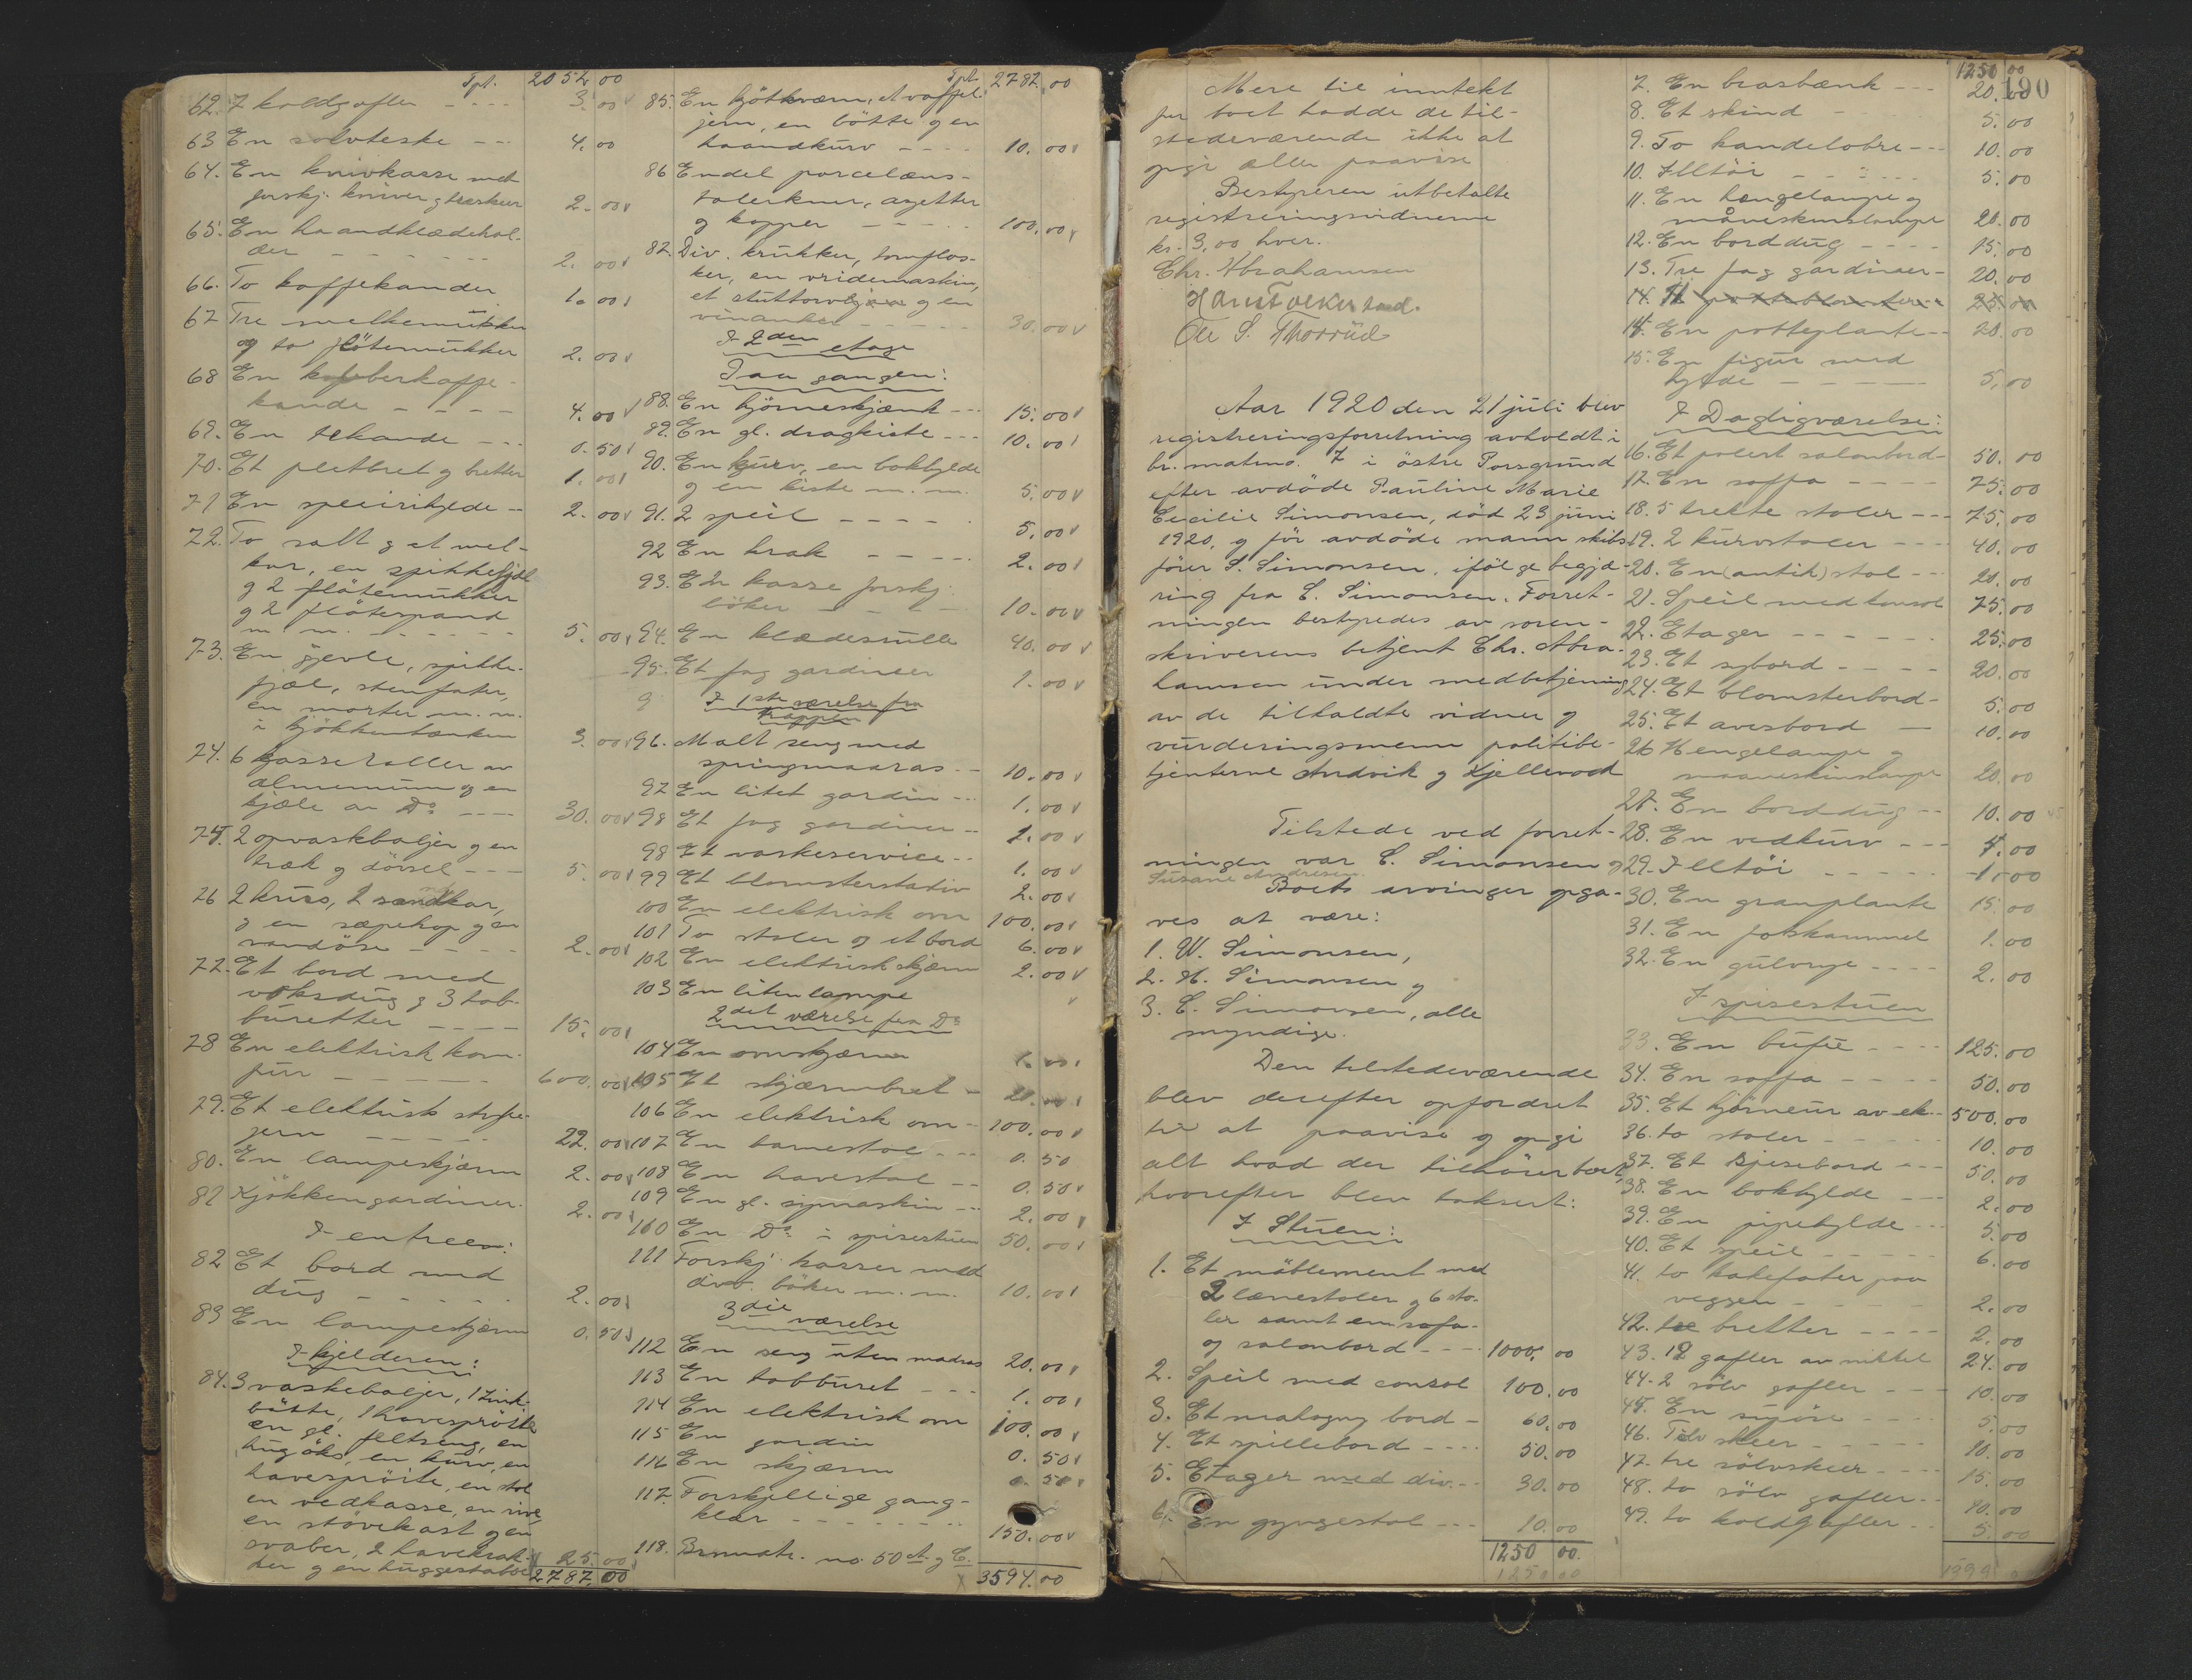 Tpt. 2052.00
62. 7 koldgafler - - - - 3.00
63 En solvteske - - - 4.00
64. En knivkasse med
forskj. kniver g træskeer 2.00
65. En haandklædehol-
der - - - - - - 2.00
66. To kaffekander 1.00
67 Tre melkemukker
og to flötemukker 2.00
68 En kobberkaffe-
kande - - - - 4.00
69. En tekande - - - 0.50
70. Et pletbret g bretter 1.00
71 En speirihylde - - 2.00
72. To salt g et mel-
kar, en spikkefjæl
g 2 flötemukker
g 2 flöterpand
m. m. - - - - - 5.00
73. En gjevle, spikke-
fjæl, stenfater,
en morter m. m.
i kjökkenbænken 3.00
74. 6 kasseroller av
alminium g en
kjele av Do - - - 30.00
75. 2 opvaskbaljer g en
træk g dörsel - - - 5.00
76 2 krus, 2 vandkar,
g en sæpekop g en
vandöse - - - - 2.00
77. Et bord med
voksdug g 3 tab-
buretter - - - - 15.00
78 En elektrisk kom-
für - - - - - - 600.00
79. Et elektrisk stryke-
jern - - - - - 22.00
80. En lampeskjærm 2.00
81 Kjökkengardiner. 2.00
I entreen:
82 Et bord med
dug - - - - - 2.00
83 En lampeskjærm 0.50
I kjelderen:
84. 3 vaskebaljer, 1 zink-
bötte, 1 havespröite
en gl. feltseng, en
hugöks, en kurv, en
havespröite, en stol
en vedkasse, en rive,
en stövekost g en
svaber, 2 havekrak-
ker g en huggestabbe 25.00
2787.00
Tpt. 2782.00
85. En kjötkværn, et vaffel-
jern, en bötte g en
haandkurv - - - - 10.00
86 Endel porcelæns-
talerkner, asjetter
g kopper - - - - - 100.00
87. Div. krukker, tomflas-
ker, en vridemaskin,
et stuttorv g en
vinanker - - - - - 30.00
I 2den etage
Paa gangen:
88. En hjörneskjænk - - - 15.00
89. En gl. dragkiste - - - 10.00
90. En kurv, en bokhylde
g en kiste m. m. 5.00
91. 2 speil - - - - - 5.00
92 En krak - - - - - 2.00
93. En kasse forskj.
böker - - - - 10.00
94. En klædesrulle 40.00
95. Et fag gardiner 1.00
I 1ste værelse fra
trappen
96. Malt seng med
springmadras - - 10.00
97 En litet gardin - - - 1.00
98 Et fag gardiner - - 2.00
98 Et vaskeservice - - 1.00
99 Et blomsterstativ 2.00
100 En elektrisk ovn 100.00
101 To stoler og et bord 6.00
102 En elektrisk skjærm 2.00
103 En liten lampe
2det værelse fra Do
104 En ovnskjærm 1.00
105 Et skjærmbret - 2.00
106 En elektrisk ovn - 100.00
107 En barnestol - - - 0.50
108 En havestol - - 0.50
109 En gl. symaskin - - 2.00
110 En Do i spisestuen 50.00
111 Forskj. kasser med
div. böker m. m. 10.00
3die værelse
112 En seng uten madras 20.00
113 En tabburet - - - 1.00
114 En elektrisk ovn 100.00
115 En gardin 0.50
116 En skjærm 0.50
117. Forskjellige gang-
klær - - - - - - - - 150.00
118. Brmatr. no 50 A. g C.
3594.00
190
Mere til inntekt
for boet hadde de til-
stedeværende ikke at
opgi eller paavise
Bestyreren utbetalte
registreringsvidnerne
kr. 3,00 hver.
Chr. Abrahamsen
Ole S. Thorrud
Aar 1920 den 21 juli blev
registreringsforretning avholdt i
br. matrno. 7 i östre Porsgrund
efter avdöde Pauline Marie
Cecilie Simonsen, död 23 juni
1920, g för avdöde mann skibs-
förer S. Simonsen, ifölge begjæ-
ring fra C. Simonsen. Forret-
ningen bestyredes av soren-
skriverens betjent Chr. Abra-
hamsen under medbetjening
av de tilkaldte vidner g
vurderingsmenn politibe-
tjenterne Andvik g Kjellevold
Tilstede ved forret-
ningen var C. Simonsen g
Susanne Andresen.
Boets arvinger opga-
ves at være:
1. W. Simonsen,
2. H. Simonsen g
3. C. Simonsen, alle
myndige.
Den tilstedeværende
blev derefter opfordret
til at paavise g opgi
alt hvad der tilhörer boet,
hvorefter blev taksert:
I Stuen:
1. Et möblement med
2 lænestoler g 6 sto-
ler samt em sofa-
og salonbord - - - 1000.00
2. Speil med consol 100.00
3. Et mahogny bord - 60.00
4. Et spillebord - - - - 50.00
5. Etager med div. - - 30.00
6. En gyngestol - - - 10.00
1250 00.
1250 00
1250 00
7. En brasbænk - - - 20.00
8. Et skind - 5.00
9. To kandelobre - - - 10.00
10. Ildtöi - - - - - 5.00
11. En hængelampe g
måneskinslampe 20.00
12. En borddug - - - - 15.00
13. Tre fag gardiner - 20.00
14. 11 potteblomster - - 25.00
14. En potteplante - - 20.00
15. En figur med
hylde - - - - - 5.00
I Dagligværelse:
16. Et polert salonbord - 50.00
17. En soffa - - - - 75.00
18. 5 trekte stoler - - - 75.00
19. 2 kurvstoler - - - - 40.00
20. En (antik) stol - - - 20.00
21. Speil med konsol 75.00
22. Etager - - - - - - 25.00
23. Et sybord - - - - - 20.00
24. Et blomsterbord - 5.00
25. Et avesbord - 10.00
26 Hengelampe g
maaneskinslampe 20.00
27. En borddug - - 10.00
28. En vedkurv - - - 4.00
29. Ildtöi - - - - - 1.00
30. En granplante 15.00
31. En fotskammel 1.00
32. En gulvrye - - - - 2.00
I spisestuen
33. En bufie - - - - 125.00
34. En soffa - - - - 50.00
35. Et hjörneur av ek - - 500.00
36. to stoler - - - - - 10.00
37. Et spisebord - - - 50.00
38. En bokhylde - - - 2.00
39. En pipehylde - - - 5.00
40. Et speil - - - - - 6.00
41. to kakefater paa
veggen - - - - - 2.00
42. tre bretter - - - - 2.00
43. 12 gafler av nikkel 24.00
44. 2 sölv gafler - - - 10.00
45. En supöse - - - - 5.00
46. Tolv skeer - - - - - 10.00
47. tre sölvskeer - - - - 15.00
48. to sölv gafler - - 10.00
49. to koldgafler - - - 5.00